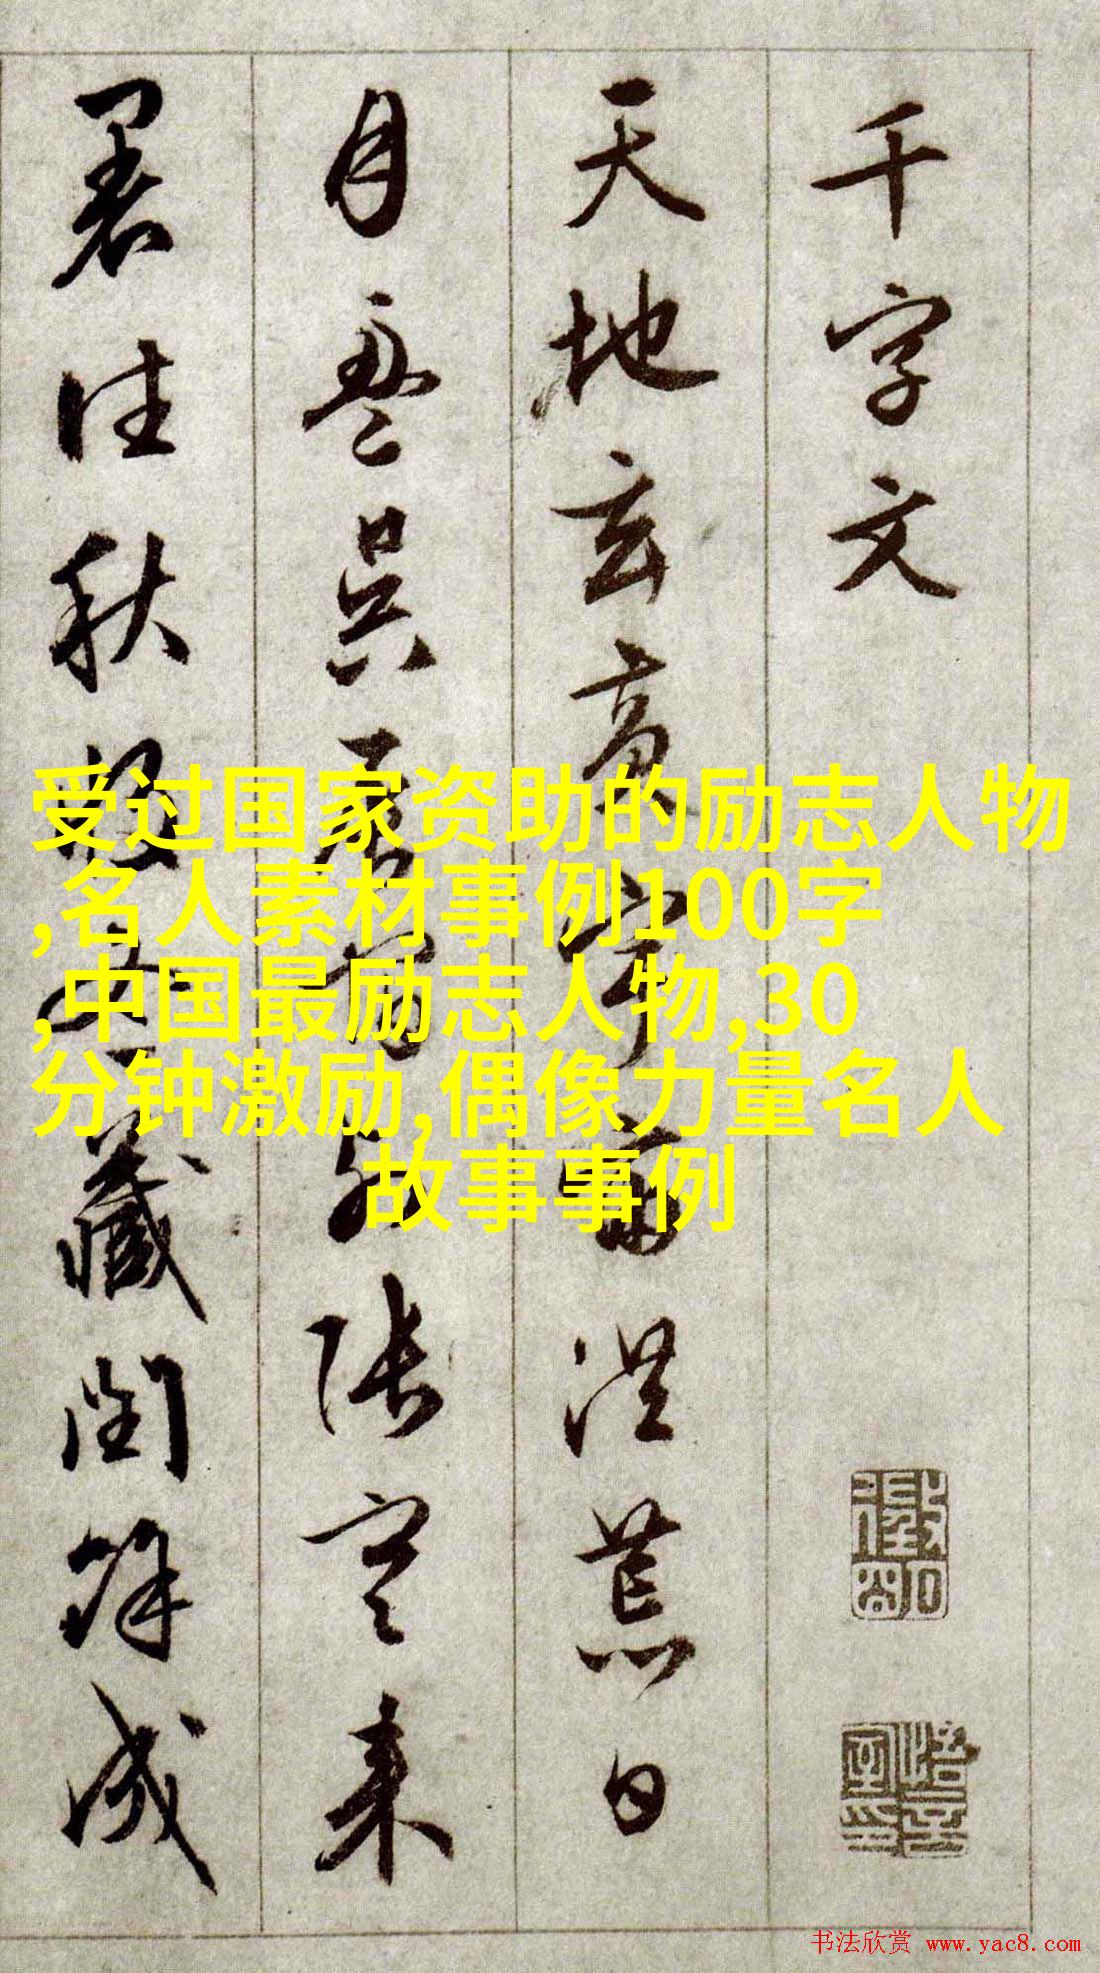 千字文
天地玄黄宇宙洪荒日
月盈昃辰宿列張寒来
暑往秋收冬藏閏餘成
受过国家资助的励志人物
,名人素材事例100字
,中国最励志人物,30
分钟激励,偶像力量名人
故事事例
书法欣赏 www.yac8.com